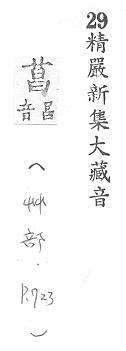 29精嚴新集大藏音
菖
昌音
（艸部．P.723）